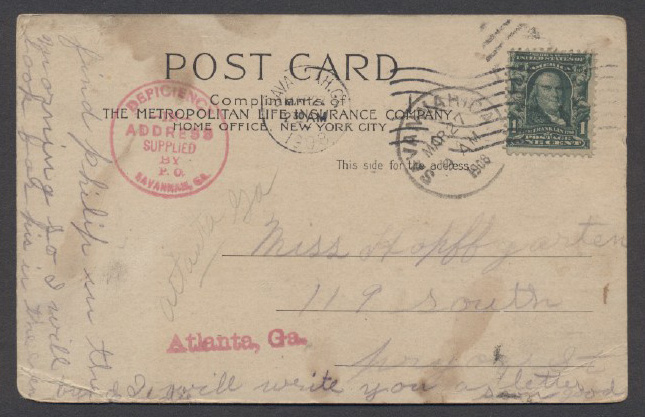 POST CARD
Compliments of
THE METROPOLITAN LIFE INSURANCE COMPANY
HOME OFFICE, NEW YORK CITY
This side for the address
DEFICIENCY
IN
ADDRESS
SUPPLIED
BY
P. O.
SAVANNAH, GA.
SAVANNAH, GA.
MAR 27
AM
1908
UNITED STATES OF AMERICA
POSTAGE
ONE CENT
Atlanta Ga
Miss Hopffgarten
119 South
St
Atlanta, Ga.
find philip in the
morning so I will
look for his in the
I will write you a letter